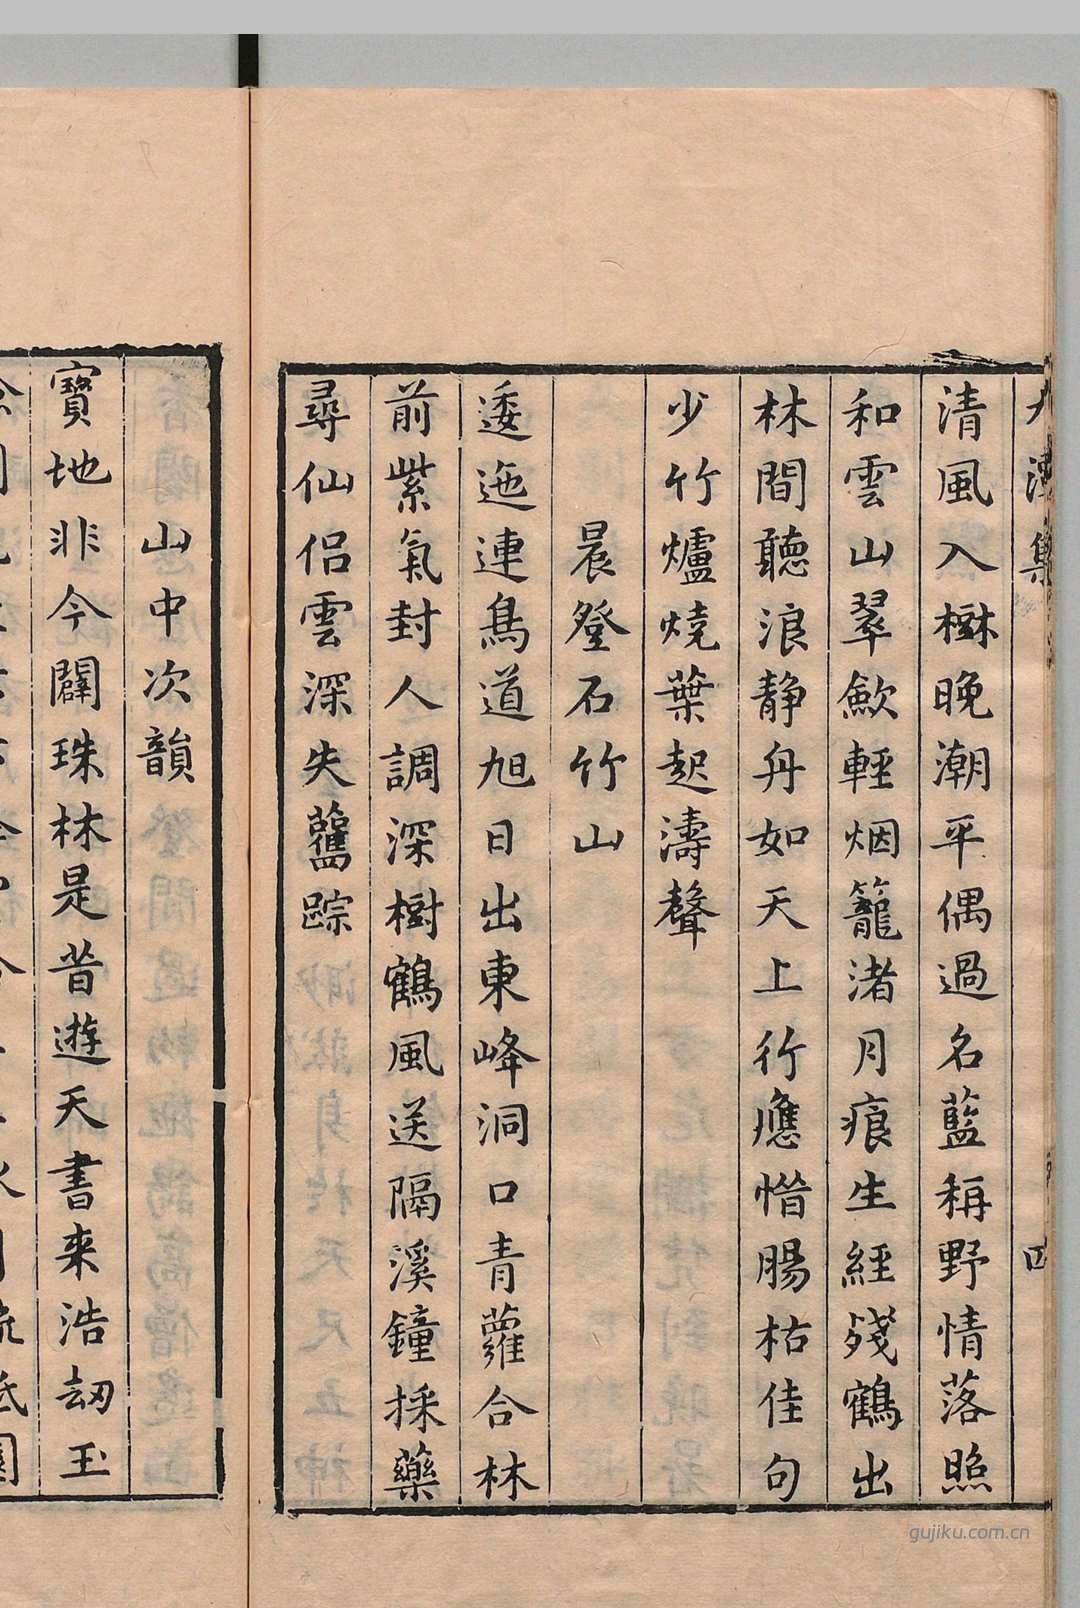 清風入樹晚潮平偶過名藍稱野情落照
和雲山翠歛輕烟籠渚月痕生經殘鶴出
林間聽浪靜舟如天上行應惜腸枯佳句
少竹爐燒葉起濤聲
晨登石竹山
逶迤連鳥道旭日出東峰洞口青蘿合林
前紫氣封人調深樹鶴風送隔溪鐘採藥
尋仙侶雲深失舊踪
山中次韻
寶地非今闢珠林是昔遊天書来浩刼玉
gujiku.com.cn